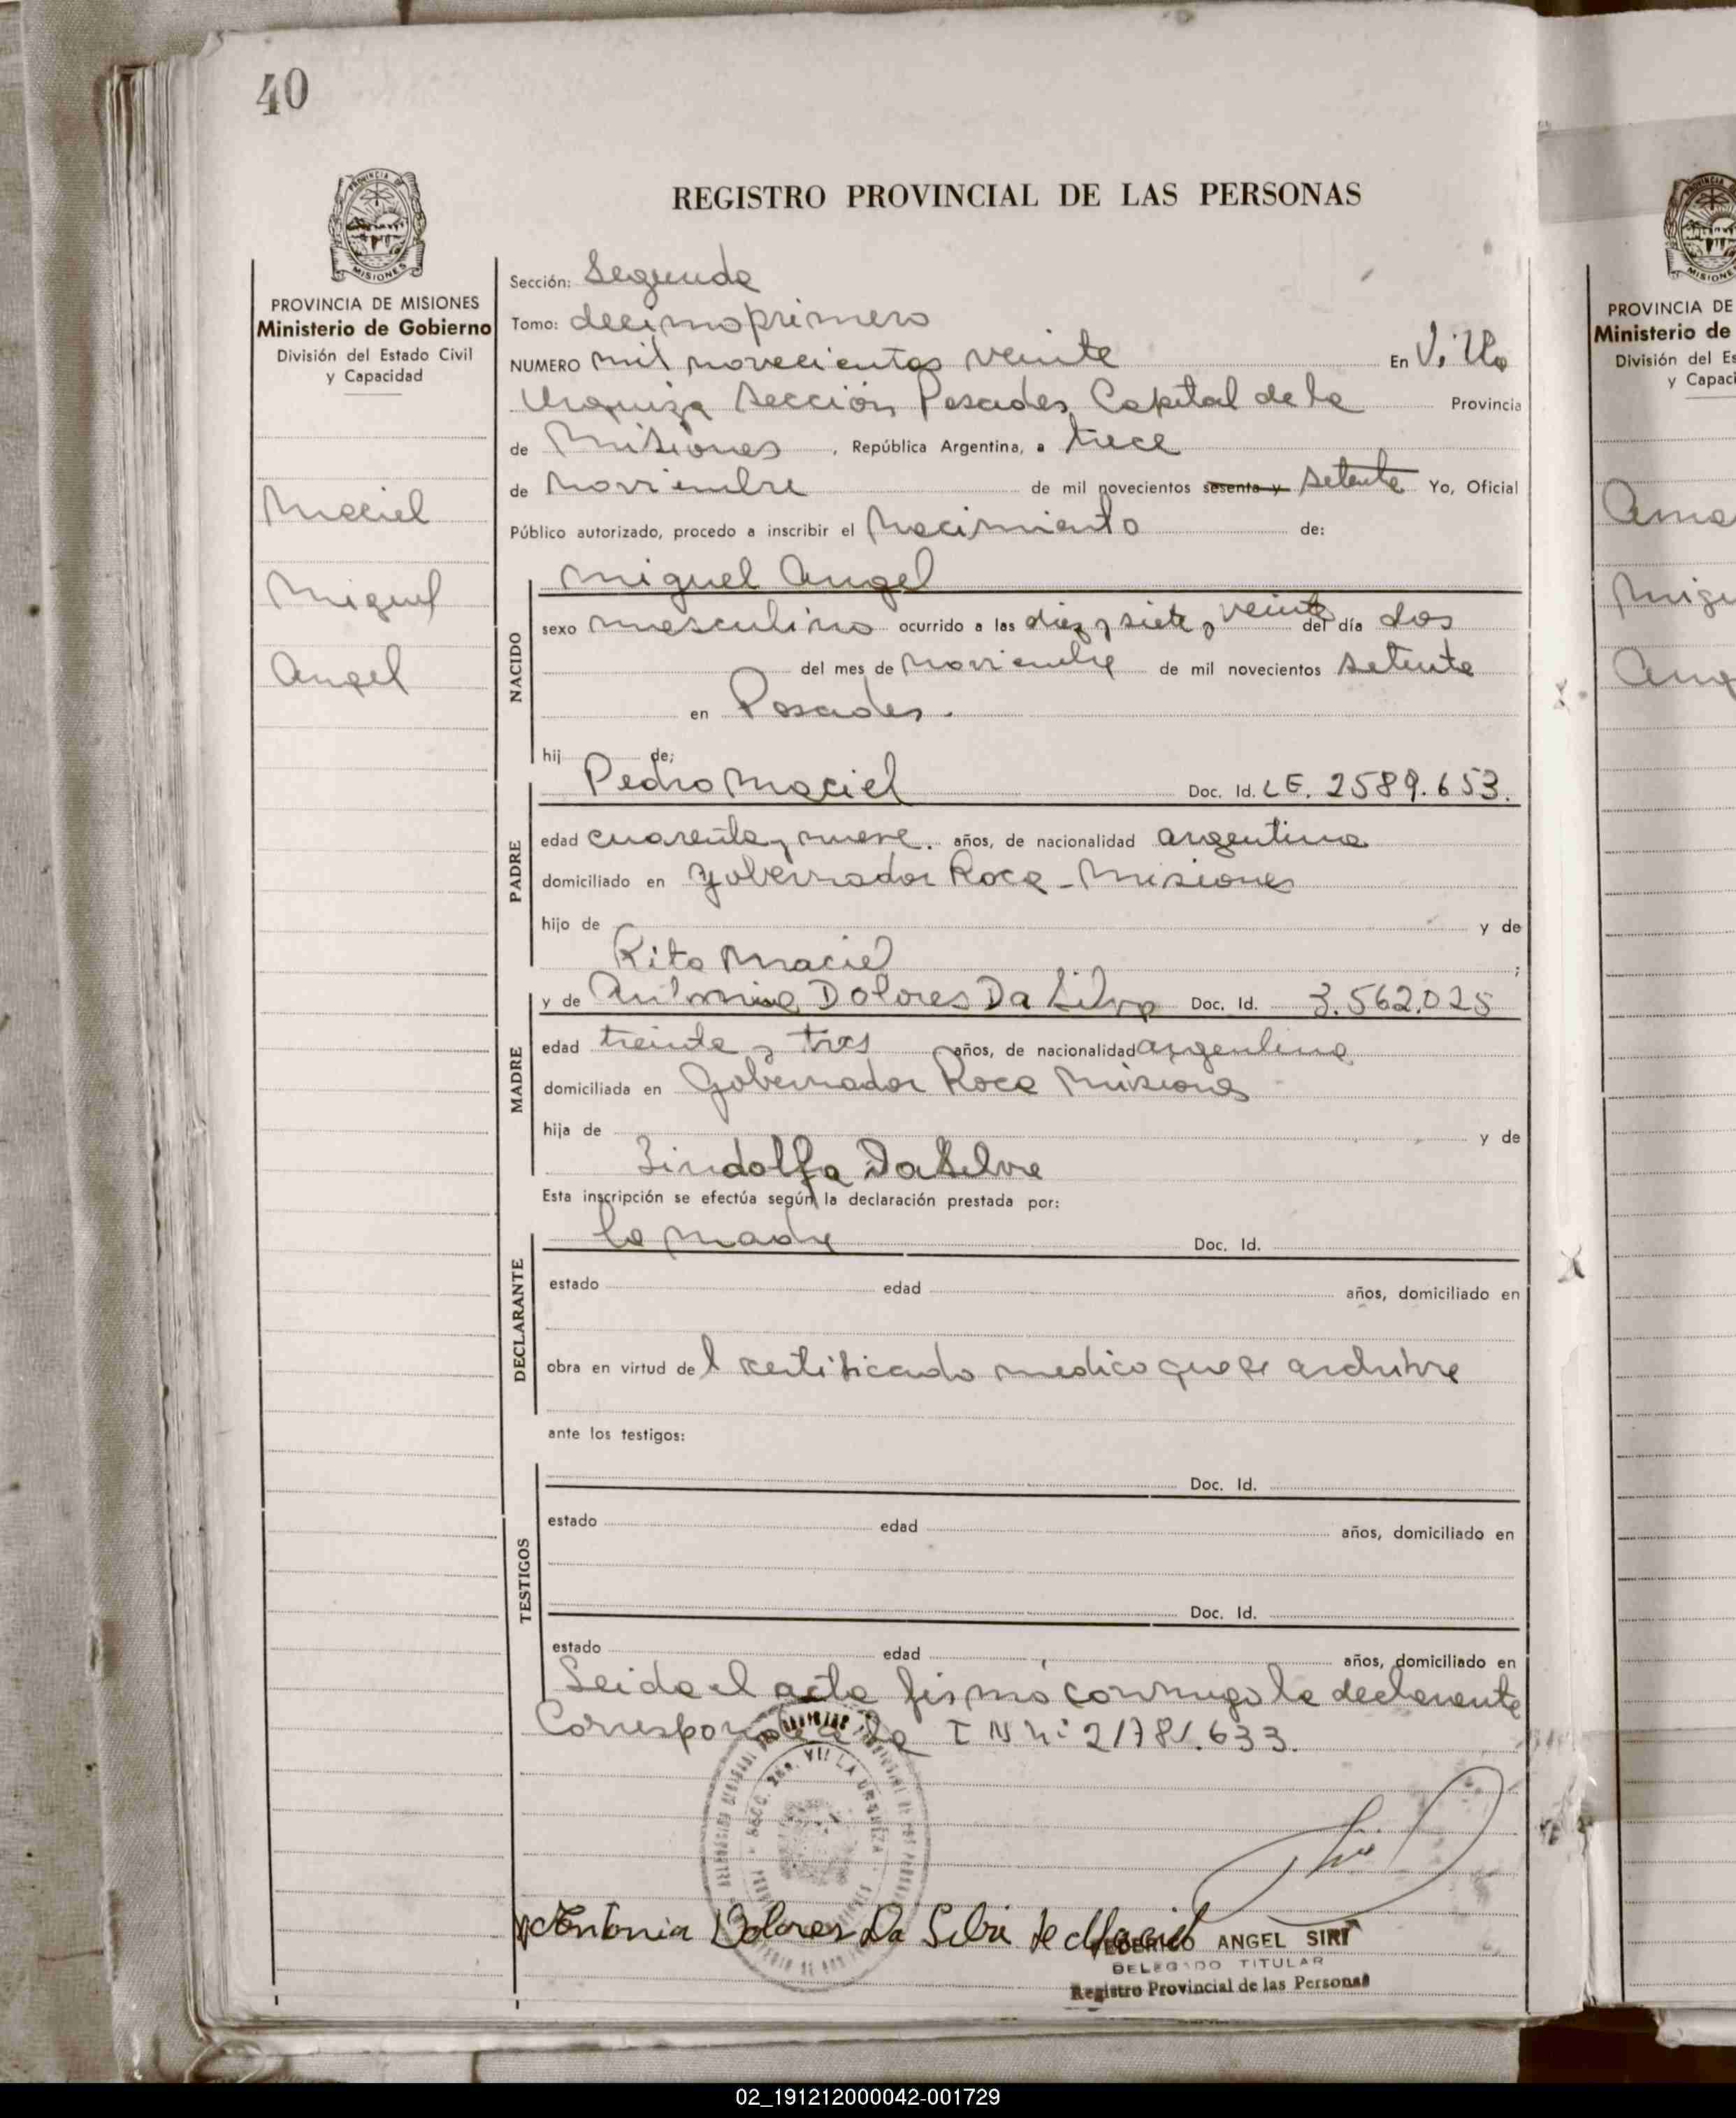 40
PROVINCIA DE MISIONES
Ministerio de Gobierno
División del Estado Civil
y Capacidad
Maciel
Miguel
Angel
REGISTRO PROVINCIAL DE LAS PERSONAS
Sección: Segunda
Tomo: decimoprimero
NUMERO mil novecientos veinte En Villa
Urquiza Sección Posadas Capital de la Provincia
de Misiones, República Argentina, a trece
de Noviembre de mil novecientos sesenta y setenta Yo, Oficial
Público autorizado, procedo a inscribir el Nacimiento de:
NACIDO
Miguel Angel
sexo masculino ocurrido a las diez y siete y veinte del día dos
del mes de Noviembre de mil novecientos setenta
en Posadas.
hij de;
PADRE
Pedro Maciel Doc. Id. LE. 2589.653.
edad cuarenta y nueve. años, de nacionalidad argentina
domiciliado en Gobernador Roca - Misiones
hijo de y de
Rita Maciel ;
MADRE
y de Antonia Dolores Da Silva Doc. Id. 3.562.025
edad treinta y tres años, de nacionalidad argentina
domiciliada en Gobernador Roca Misiones
hija de y de
Lindolfa Da Silva
Esta inscripción se efectúa según la declaración prestada por:
DECLARANTE
la madre Doc. Id.
estado edad años, domiciliado en
obra en virtud del certificado medico que se archiva
ante los testigos:
TESTIGOS
Doc. Id.
estado edad años, domiciliado en
Doc. Id.
estado edad años, domiciliado en
Leida el acta firmó conmigo la declarante
Corresponde a la
SECC. 2da. VILLA URQUIZA
Antonia Dolores Da Silva de Maciel
FEDERICO ANGEL SIRI
DELEGADO TITULAR
Registro Provincial de las Personas
PROVINCIA DE
Ministerio de
División del Es
y Capaci
02_191212000042-001729